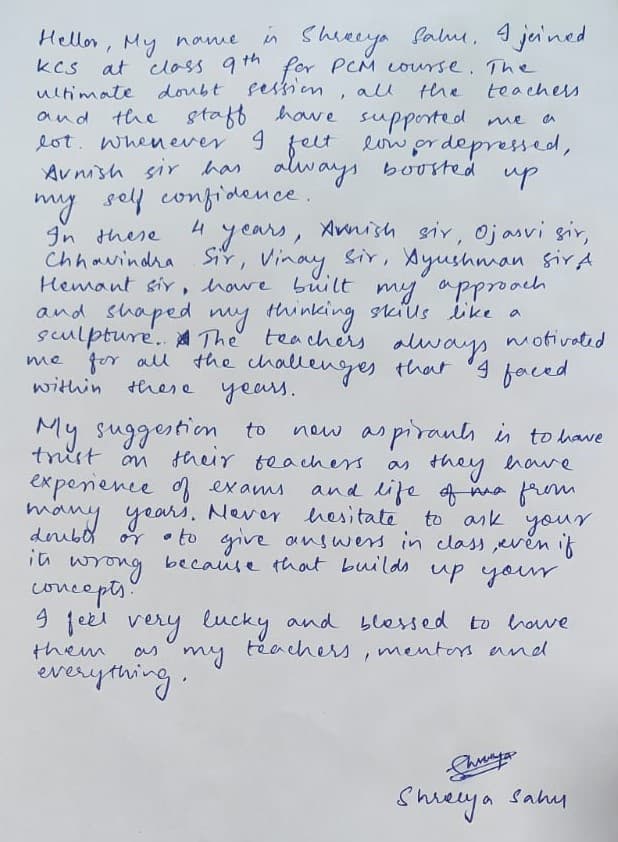 Hello, My name is Shreeya Sahu. I joined
KCS at class 9th for PCM course. The
ultimate doubt session, all the teachers
and the staff have supported me a
lot. Whenever I felt low or depressed,
Avnish sir has always boosted up
my self confidence.
In these 4 years, Avnish sir, Ojasvi sir,
Chhavindra Sir, Vinay Sir, Ayushman sir &
Hemant sir, have built my approach
and shaped my thinking skills like a
sculpture. The teachers always motivated
me for all the challenges that I faced
within these years.
My suggestion to new aspirants is to have
trust on their teachers as they have
experience of exams and life from
many years. Never hesitate to ask your
doubts or to give answers in class, even if
its wrong because that builds up your
concepts.
I feel very lucky and blessed to have
them as my teachers, mentors and
everything.
Shreeya
Shreeya Sahu